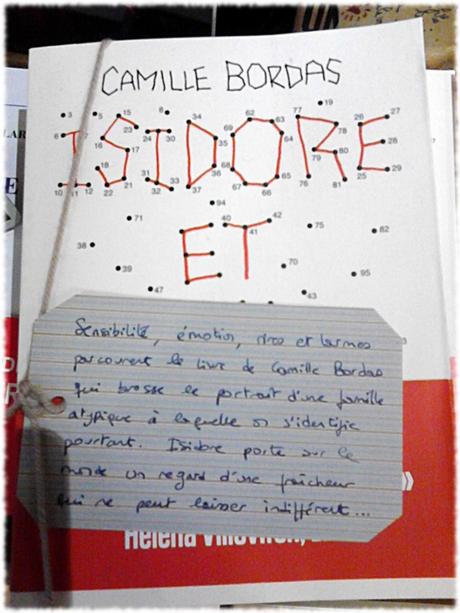 CAMILLE BORDAS
ISIDORE
ET
Sensibilité, émotion, rires et larmes
parcourent le livre de Camille Bordas
qui brosse le portrait d'une famille
atypique à laquelle on s'identifie
pourtant. Isidore porte sur le
monde un regard d'une fraîcheur
qui ne peut laisser indifférent...
»